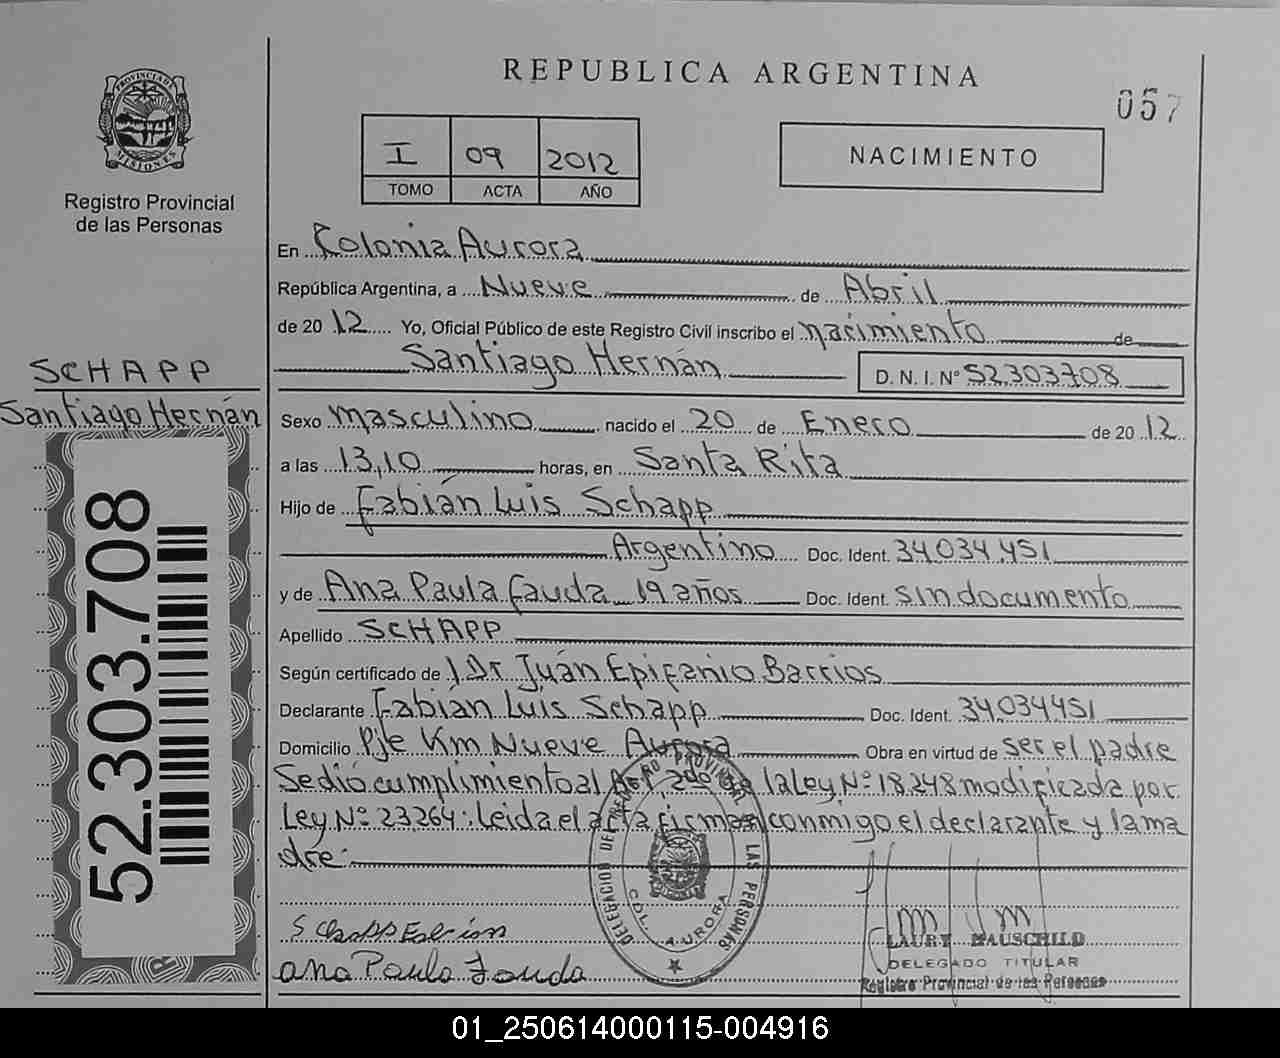 REPUBLICA ARGENTINA
057
PROVINCIA DE MISIONES
Registro Provincial
de las Personas
I 09 2012
TOMO ACTA AÑO
NACIMIENTO
En Colonia Aurora
República Argentina, a Nueve de Abril
de 20 12 Yo, Oficial Público de este Registro Civil inscribo el nacimiento de
Santiago Hernán D. N. I. N° 52.303.708
SCHAPP
Santiago Hernán
52.303.708
Sexo masculino nacido el 20 de Enero de 20 12
a las 13,10 horas, en Santa Rita
Hijo de Fabián Luis Schapp
Argentino Doc. Ident. 34.034.451
y de Ana Paula Fauda 19 años Doc. Ident. sin documento
Apellido SCHAPP
Según certificado de l Dr. Juán Epifanio Barrios
Declarante Fabián Luis Schapp Doc. Ident. 34.034451
Domicilio Pje Km Nueve Aurora Obra en virtud de ser el padre
Se dió cumplimiento al Art. 2do de la Ley N° 18.248 modificada por
Ley N° 23.264: Leida el acta firman conmigo el declarante y la ma
dre
DELEGACION DEL REGISTRO PROVINCIAL DE LAS PERSONAS
COL. AURORA
Schapp Fabián
Ana Paula Fauda
LAURY HAUSCHILD
DELEGADO TITULAR
Registro Provincial de las Personas
01_250614000115-004916